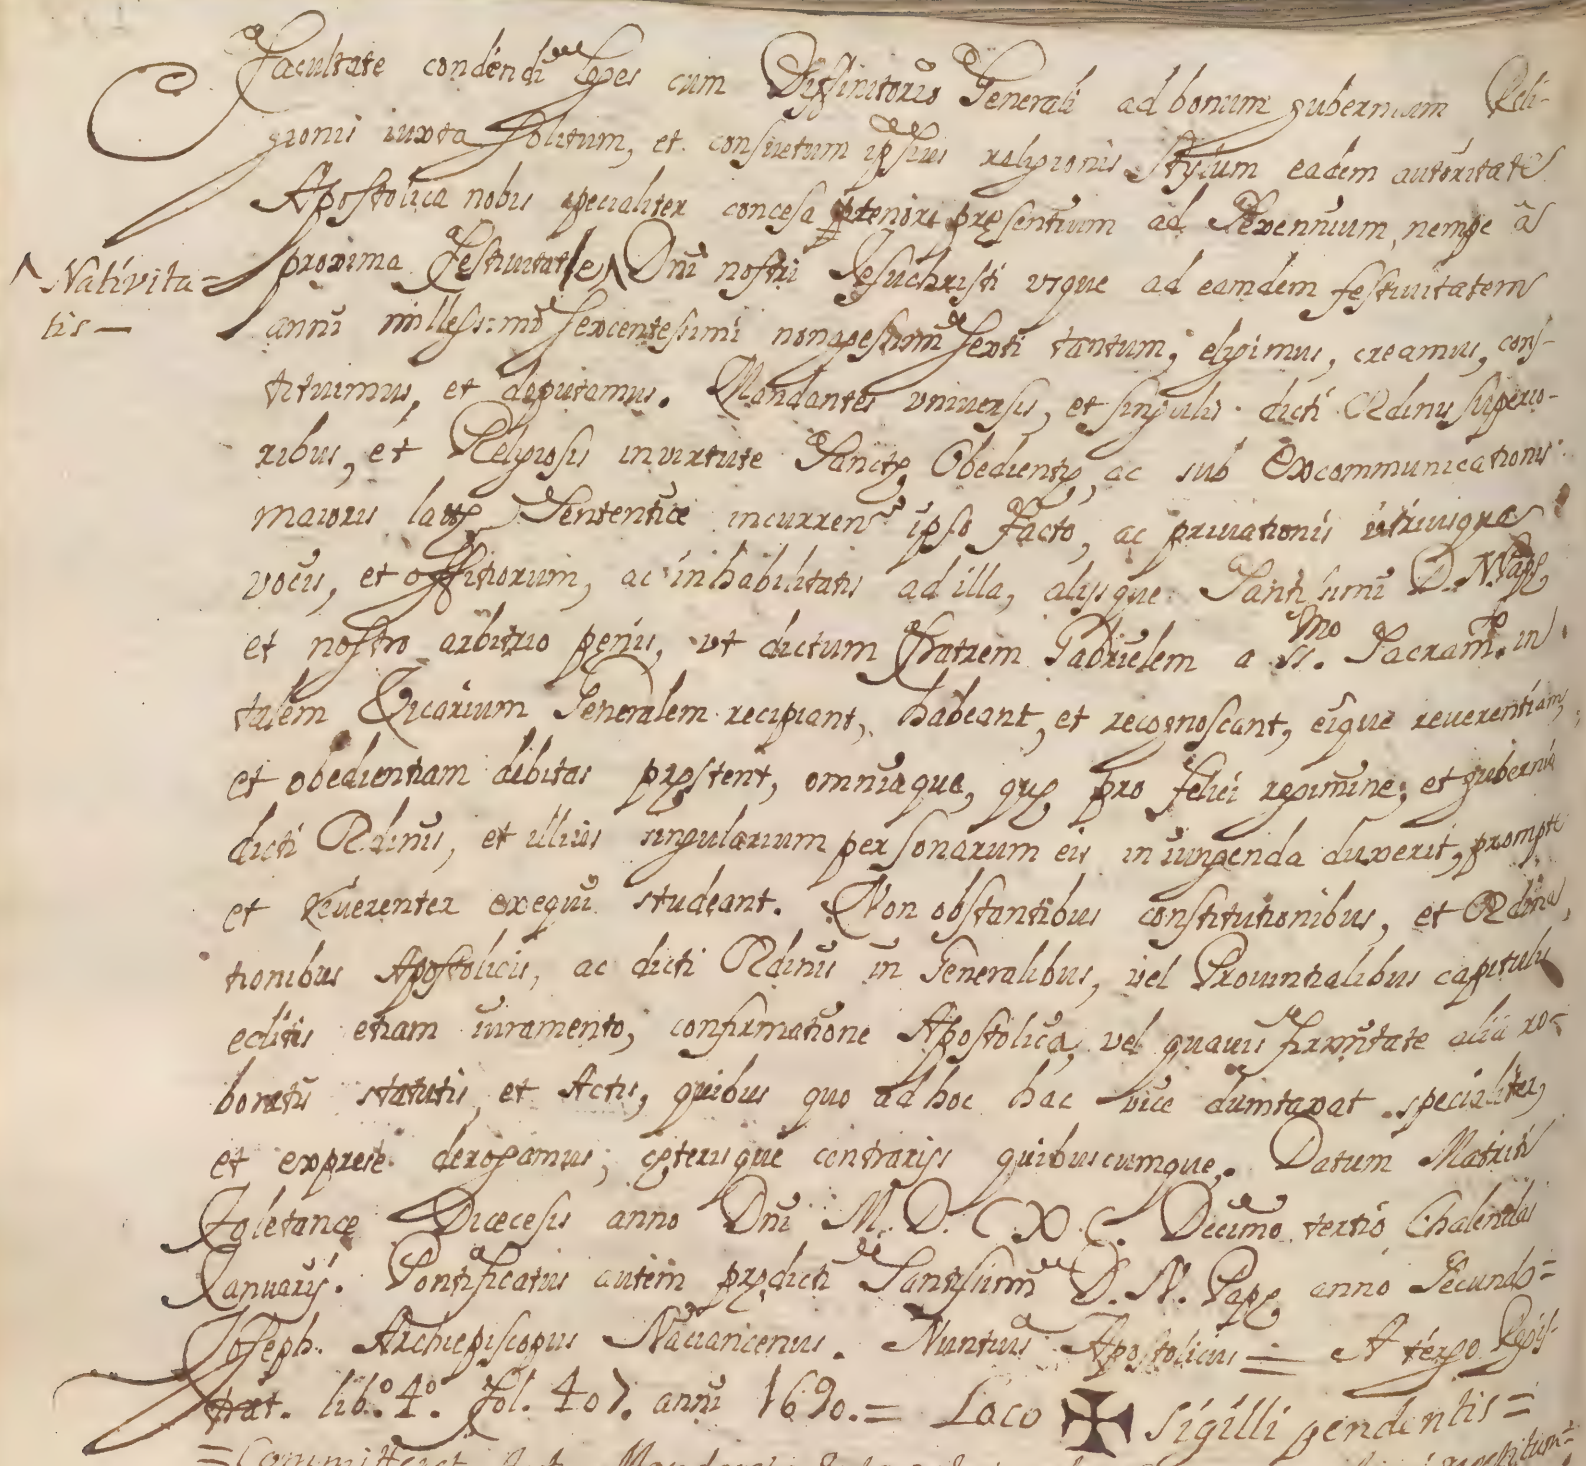 Facultate condendi leges cum Diffinitorio Generali ad bonum gubernium Reli-
gionis iuxta solitum, et consuetum ipsius religionis stylum eadem autoritate
Apostolica nobis specialiter concesa tenore presentium ad Sexennium, nempe a
proxima festivitate ^ Dni nostri Jesuchristi vsque ad eamdem festiuitatem
^ Nativita=
tis —
anni millessimo sexcentessimi nonagessimi sexti tantum; eligimus, creamus, cons-
tituimus, et deputamus. Mandantes vniuersis, et singulis dicti Ordinis superio-
ribus, et Religiosis in virtute Sanctę Obedientię, ac sub Excommunicationis
maioris latę Sententiæ incurren ipso facto, ac priuationis utriusque
vocis, et offitiorum, ac inhabilitatis ad illa, alijsque Santissimi D. N. Papę
et nostro arbitrio penis, vt dictum fratrem Gabrielem a SS.mo Sacram.to in
talem Vicarium Generalem recipiant, habeant, et recognoscant, eique reuerentiam,
et obedientiam debitas pręstent, omniaque, quę pro felici regimine, et gubernio
dicti Ordinis, et illius singularium personarum eis iniungenda duxerit, prompte
et reuerenter exequi studeant. Non obstantibus constitutionibus, et Ordina
tionibus Apostolicis, ac dicti Ordinis in Generalibus, vel Prouintialibus capitulis
editis etiam iuramento, confirmatione Apostolica, vel quauis firmitate alia ro-
boratis statutis, et Actis, quibus quo ad hoc hac vice dumtaxat specialiter,
et exprese derogamus, cęterisque contrarijs quibuscumque. Datum Matriti
Toletanæ Diœcesis anno Dni M. D. C X C. Decimo tertio Chalendas
Januarij. Pontificatus autem prędicti Santissimi D. N. Papę anno Secundo=
Joseph. Archiepiscopus Nacianzenus. Nuntius Apostolicus = A tergo Regis-
trat. lib.º 4.º fol. 407. anni 1690. = Loco ✠ sigilli pendentis =